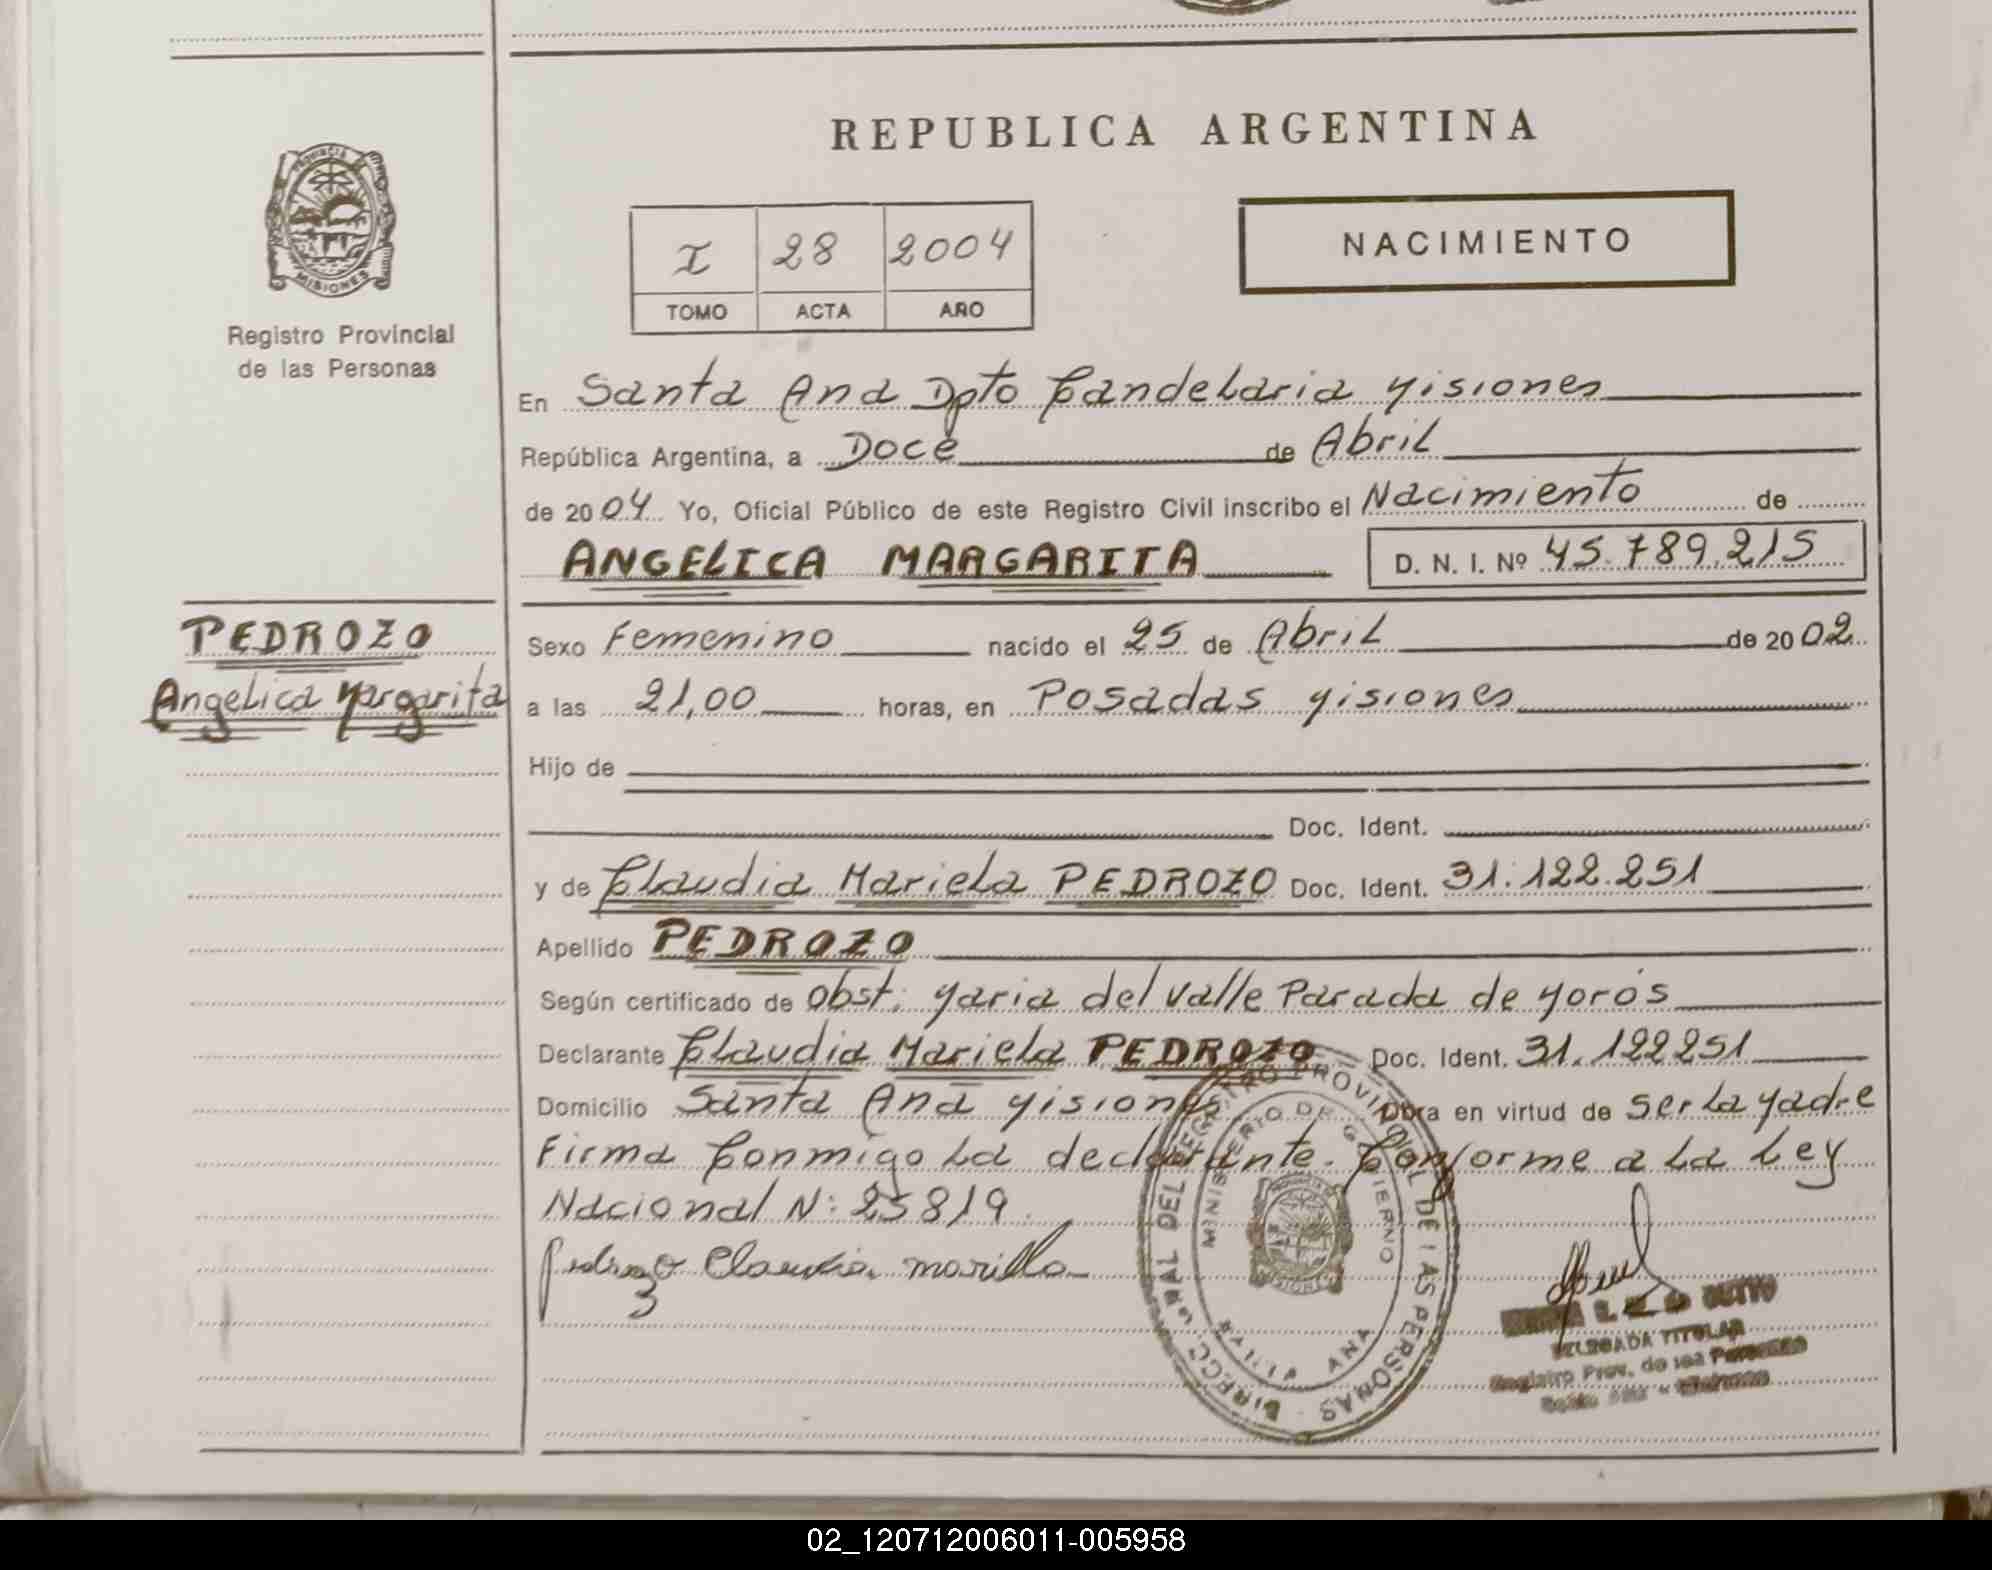 REPUBLICA ARGENTINA
PROVINCIA
MISIONES
Registro Provincial
de las Personas
I 28 2004
TOMO ACTA AÑO
NACIMIENTO
En Santa Ana Dpto Candelaria Misiones
República Argentina, a Doce de Abril
de 2004 Yo, Oficial Público de este Registro Civil inscribo el Nacimiento de
ANGELICA MARGARITA D. N. I. Nº 45.789.215
PEDROZO
Angelica Margarita
Sexo Femenino nacido el 25 de Abril de 2002
a las 21,00 horas, en Posadas Misiones
Hijo de
Doc. Ident.
y de Claudia Mariela PEDROZO Doc. Ident. 31.122.251
Apellido PEDROZO
Según certificado de Obst. Maria del Valle Parada de Morós
Declarante Claudia Mariela PEDROZO Doc. Ident. 31.122251
Domicilio Santa Ana Misiones Obra en virtud de Ser La Madre
Firma Conmigo La declarante. Conforme a La Ley
Nacional N: 25819.
Pedrozo Claudia mariela
DIRECC. GRAL DEL REGISTRO PROVINCIAL DE LAS PERSONAS
MINISTERIO DE GOBIERNO
ANA
DELEGADA TITULAR
Registro Prov. de las Personas
02_120712006011-005958